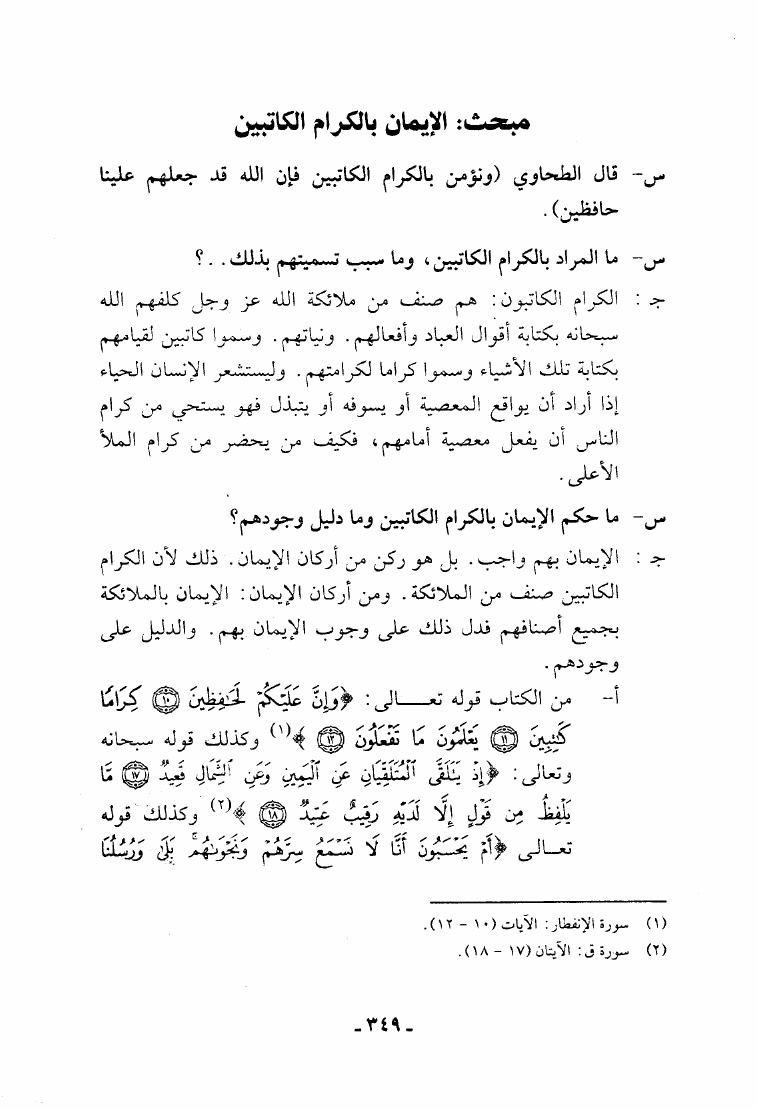 مبحث: الإيمان بالكرام الكاتبين
س- قال الطحاوي (ونؤمن بالكرام الكاتبين فإن الله قد جعلهم علينا
حافظين).
س- ما المراد بالكرام الكاتبين، وما سبب تسميتهم بذلك..؟
جـ : الكرام الكاتبون: هم صنف من ملائكة الله عز وجل كلفهم الله
سبحانه بكتابة أقوال العباد وأفعالهم. ونياتهم. وسموا كاتبين لقيامهم
بكتابة تلك الأشياء وسموا كراما لكرامتهم. وليستشعر الإنسان الحياء
إذا أراد أن يواقع المعصية أو يسوفه أو يتبذل فهو يستحي من كرام
الناس أن يفعل معصية أمامهم، فكيف من يحضر من كرام الملأ
الأعلى.
س- ما حكم الإيمان بالكرام الكاتبين وما دليل وجودهم؟
جـ : الإيمان بهم واجب. بل هو ركن من أركان الإيمان. ذلك لأن الكرام
الكاتبين صنف من الملائكة. ومن أركان الإيمان: الإيمان بالملائكة
بجميع أصنافهم فدل ذلك على وجوب الإيمان بهم. والدليل على
وجودهم.
أ- من الكتاب قوله تعـــالى: ﴿وَإِنَّ عَلَيْكُمْ لَحَٰفِظِينَ ۝١٠ كِرَامًا
كَٰتِبِينَ ۝١١ يَعْلَمُونَ مَا تَفْعَلُونَ ۝١٢﴾(١) وكذلك قوله سبحانه
وتعالى: ﴿إِذْ يَتَلَقَّى ٱلْمُتَلَقِّيَانِ عَنِ ٱلْيَمِينِ وَعَنِ ٱلشِّمَالِ قَعِيدٌ ۝١٧ مَّا
يَلْفِظُ مِن قَوْلٍ إِلَّا لَدَيْهِ رَقِيبٌ عَتِيدٌ ۝١٨﴾(٢) وكذلك قوله
تعـالى ﴿أَمْ يَحْسَبُونَ أَنَّا لَا نَسْمَعُ سِرَّهُمْ وَنَجْوَىٰهُم ۚ بَلَىٰ وَرُسُلُنَا
(١) سورة الإنفطار: الآيات (١٠ - ١٢).
(٢) سورة ق: الآيتان (١٧ - ١٨).
- ٣٤٩ -